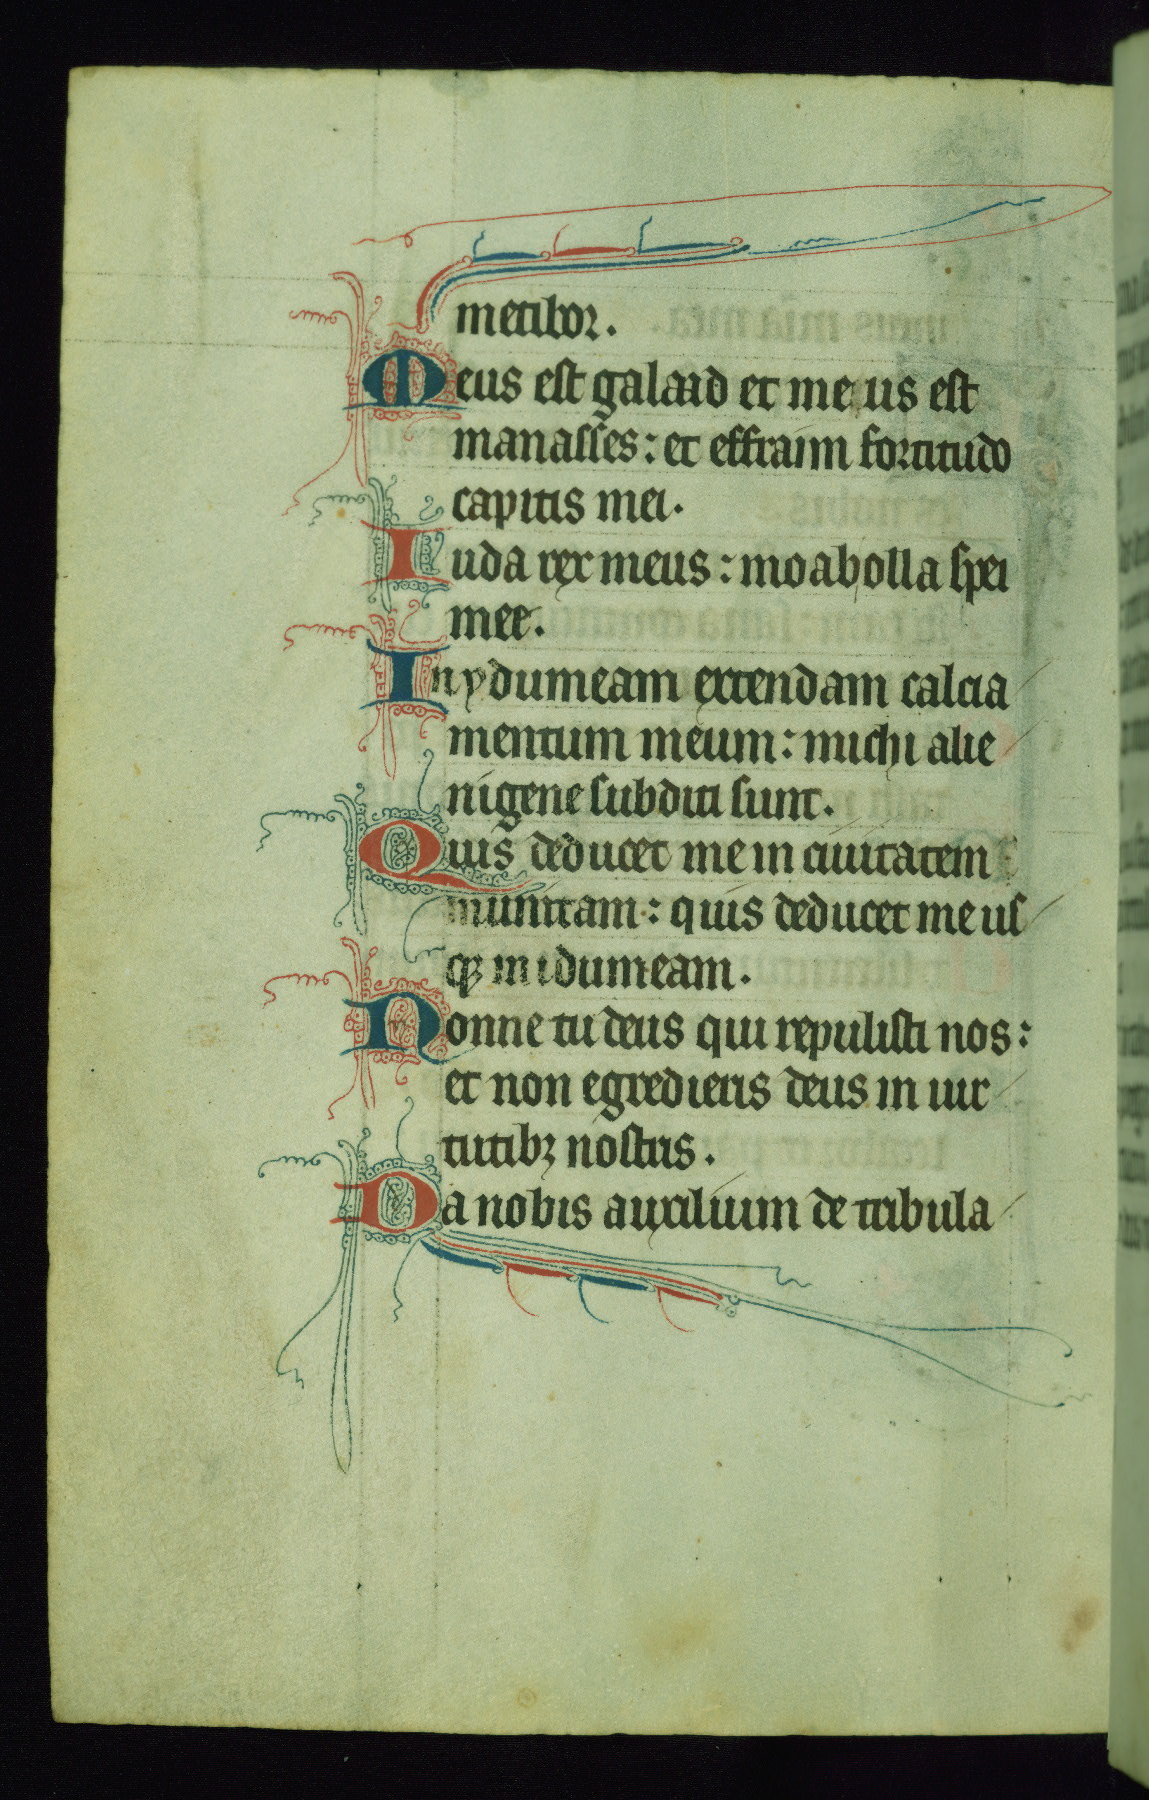 metibor.
Meus est galaad et meus est
manasses: et effraim fortitudo
capitis mei.
Iuda rex meus: moab olla spei
mee.
In ydumeam extendam calcia
mentum meum: michi alie
nigene subditi sunt.
Quis deducet me in ciuitatem
munitam: quis deducet me us
qz in idumeam.
Nonne tu deus qui repulisti nos:
et non egredieris deus in uir
tutibz nostris.
Da nobis auxilium de tribula